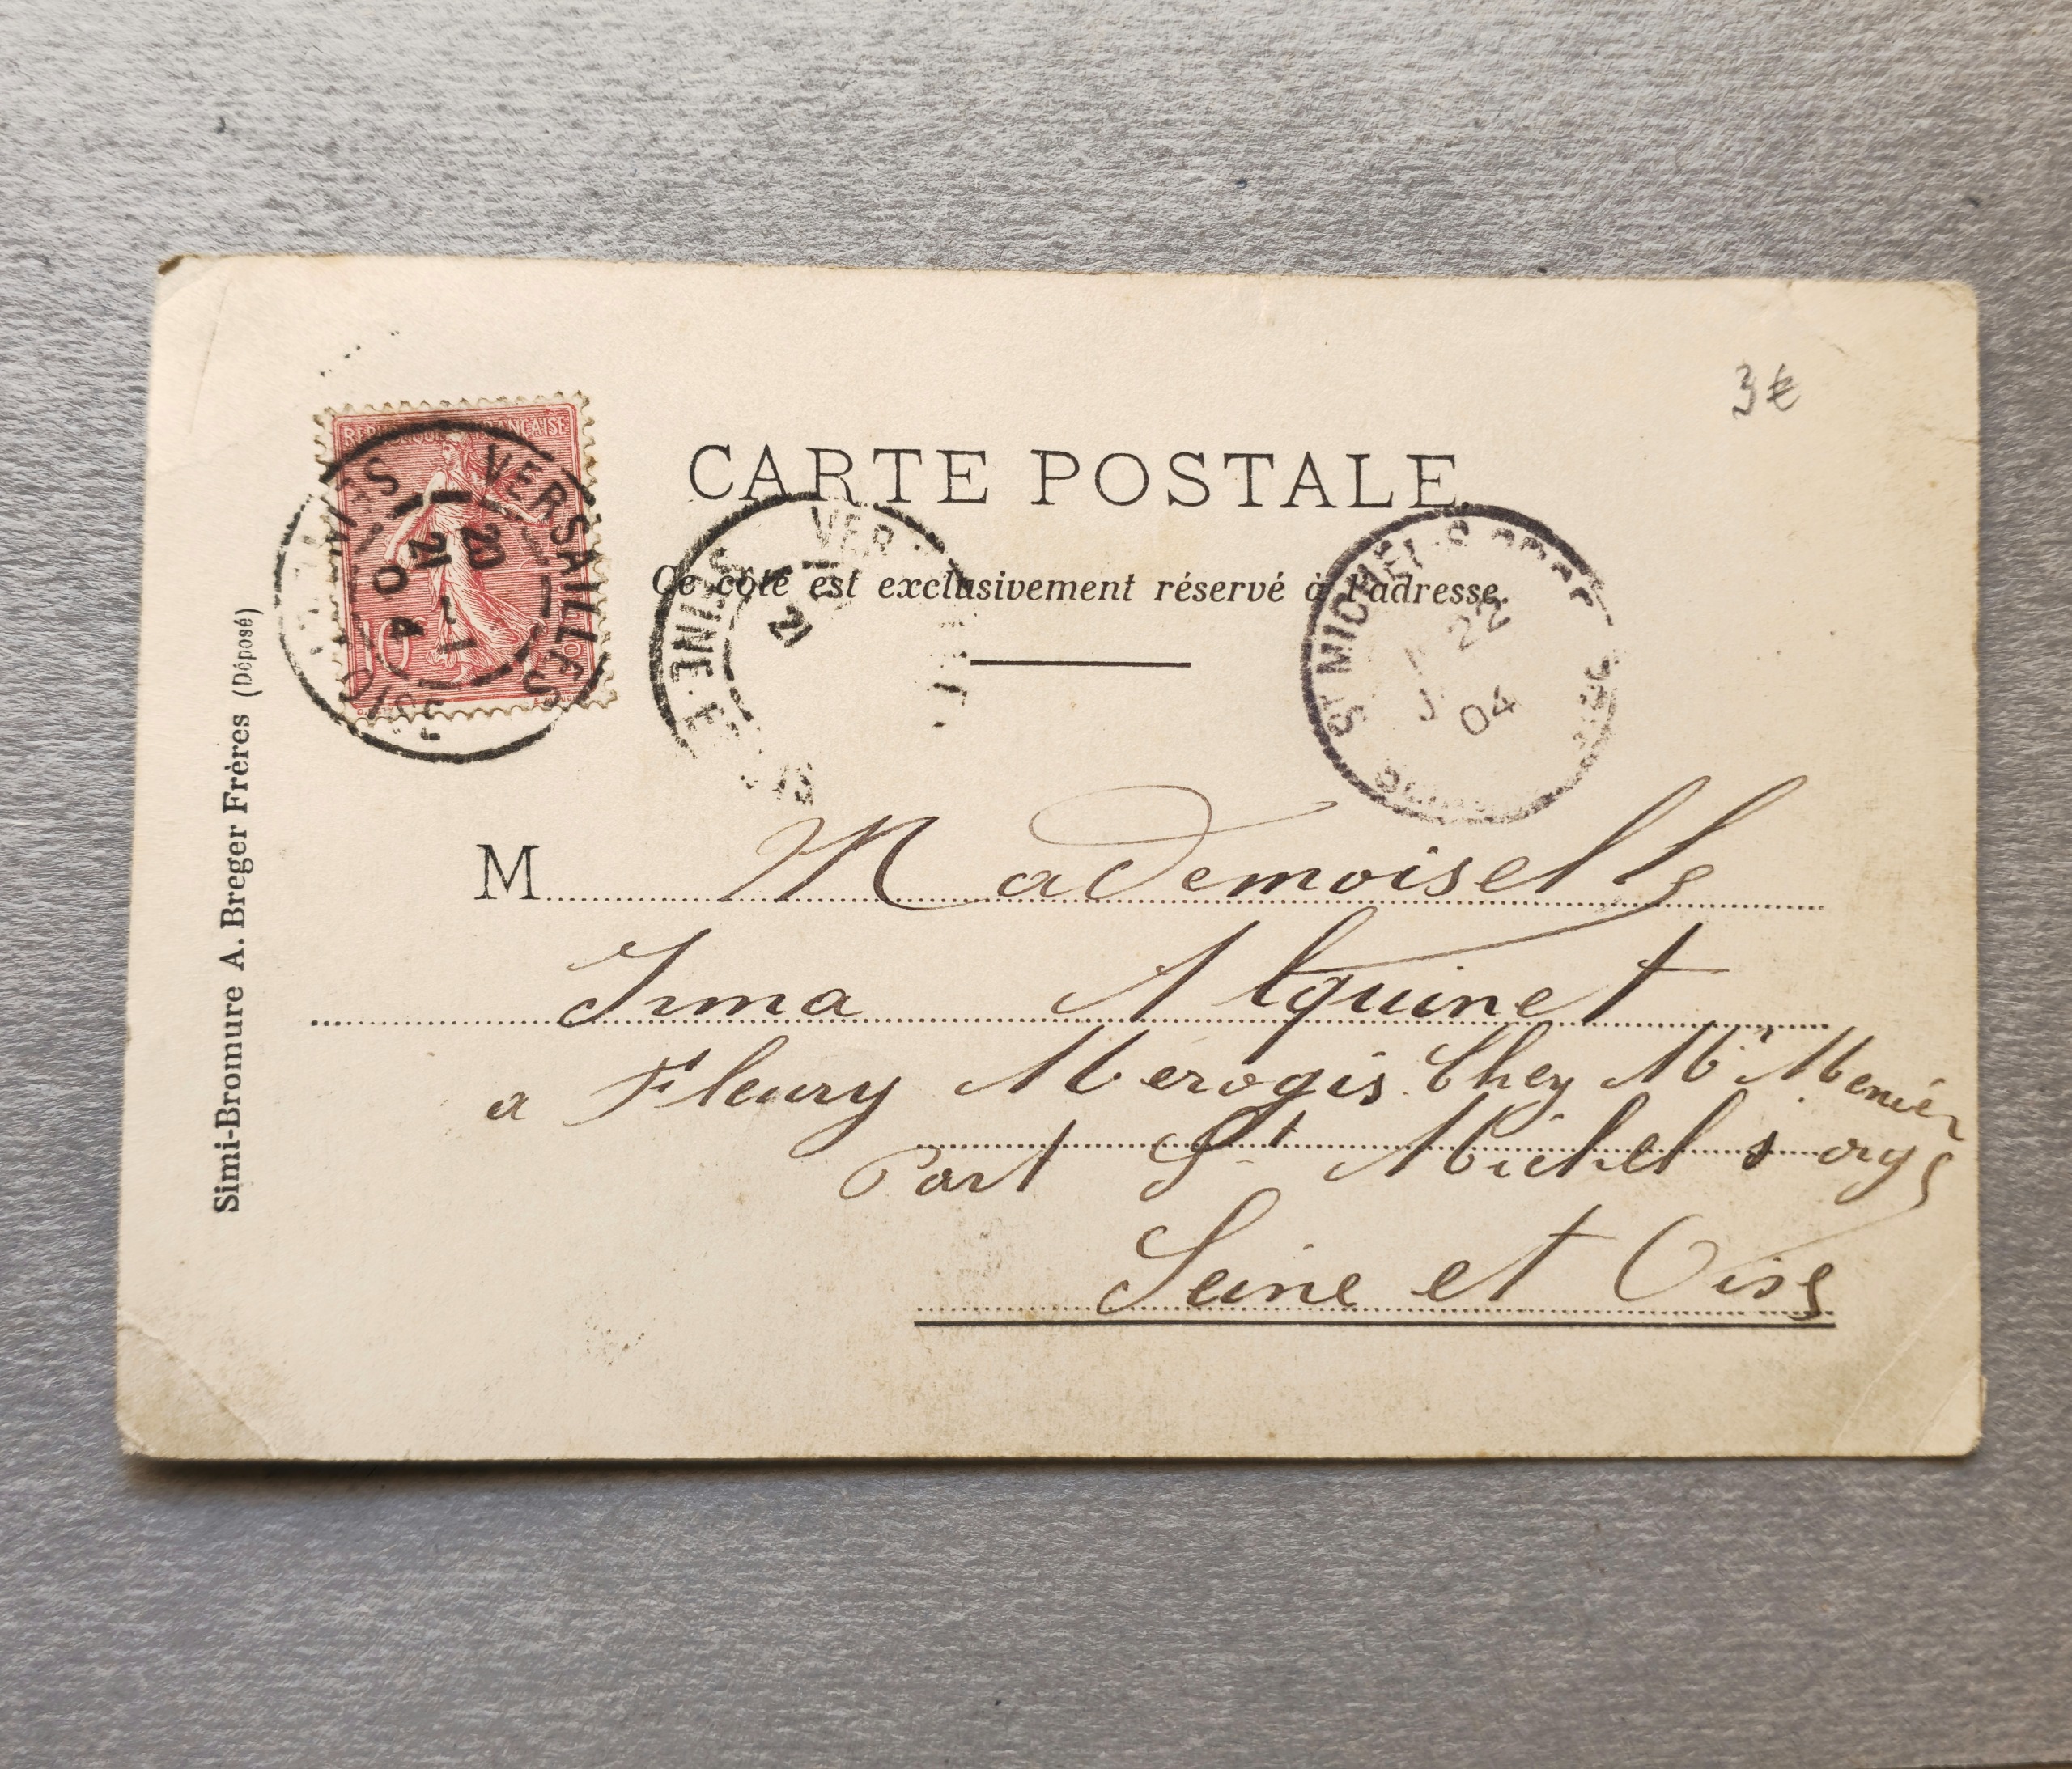 3€
REPUBLIQUE FRANÇAISE
10
VERSAILLES
20
21 -1
04
CARTE POSTALE
Ce côté est exclusivement réservé à l'adresse.
21
ST MICHEL-S-ORGE
22
04
Simi-Bromure A. Breger Frères (Déposé)
M Mademoiselle
Irma Alquinet
a Fleury Merogis Chez Mr Menier
Part St Michel s orge
Seine et Oise